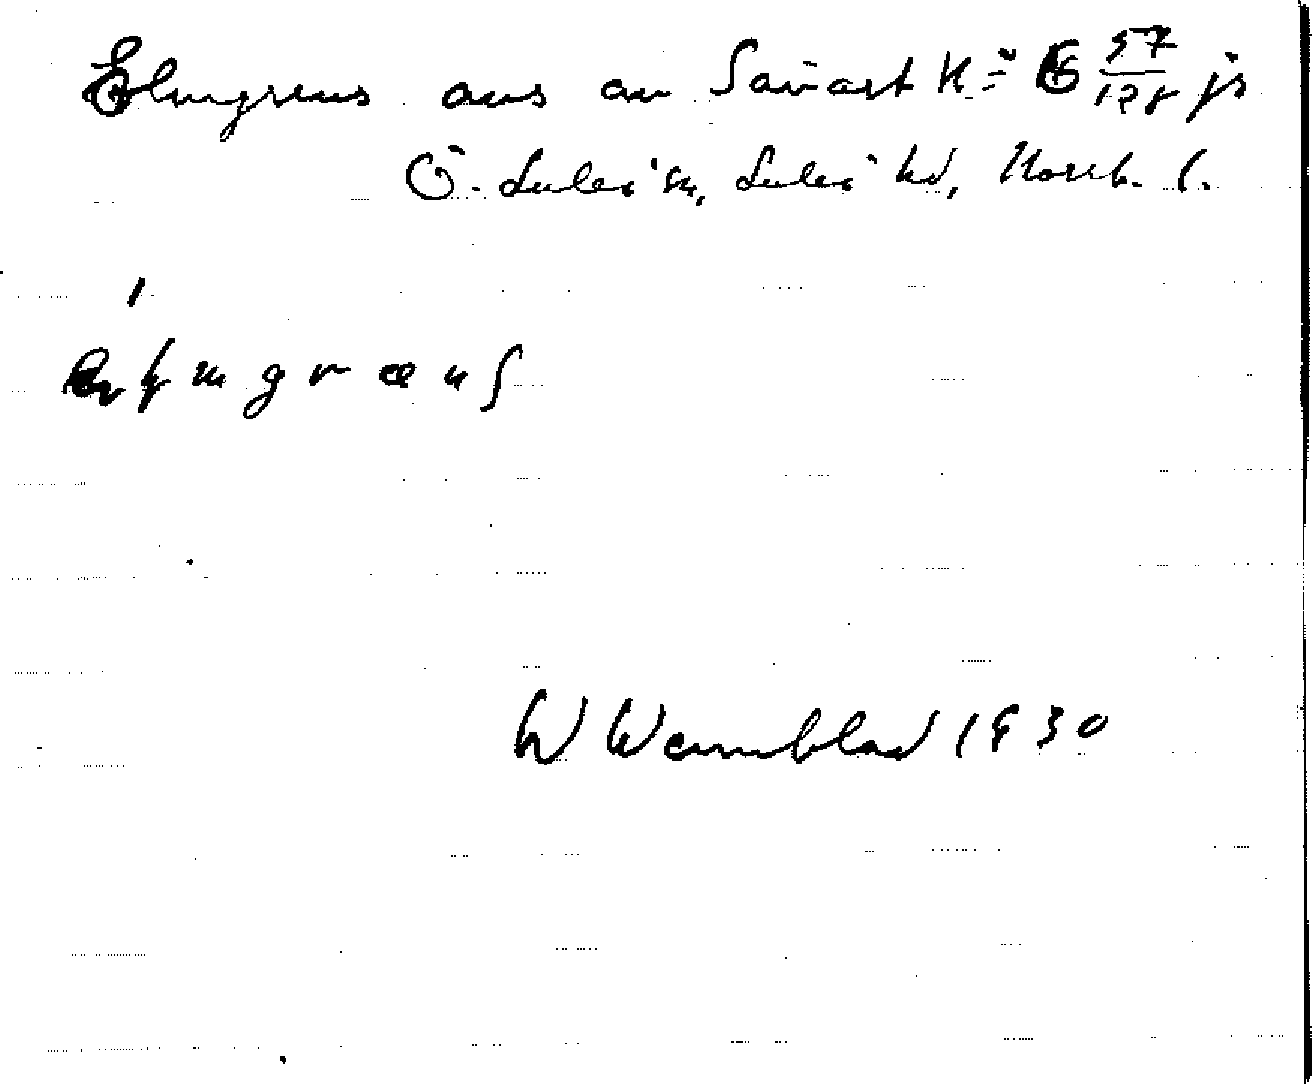 Elmgrens ans an Savast K: 6 57/128 js
Ö. Luleå sn, Luleå hd, Norrb. l.
W Wennblad 1930